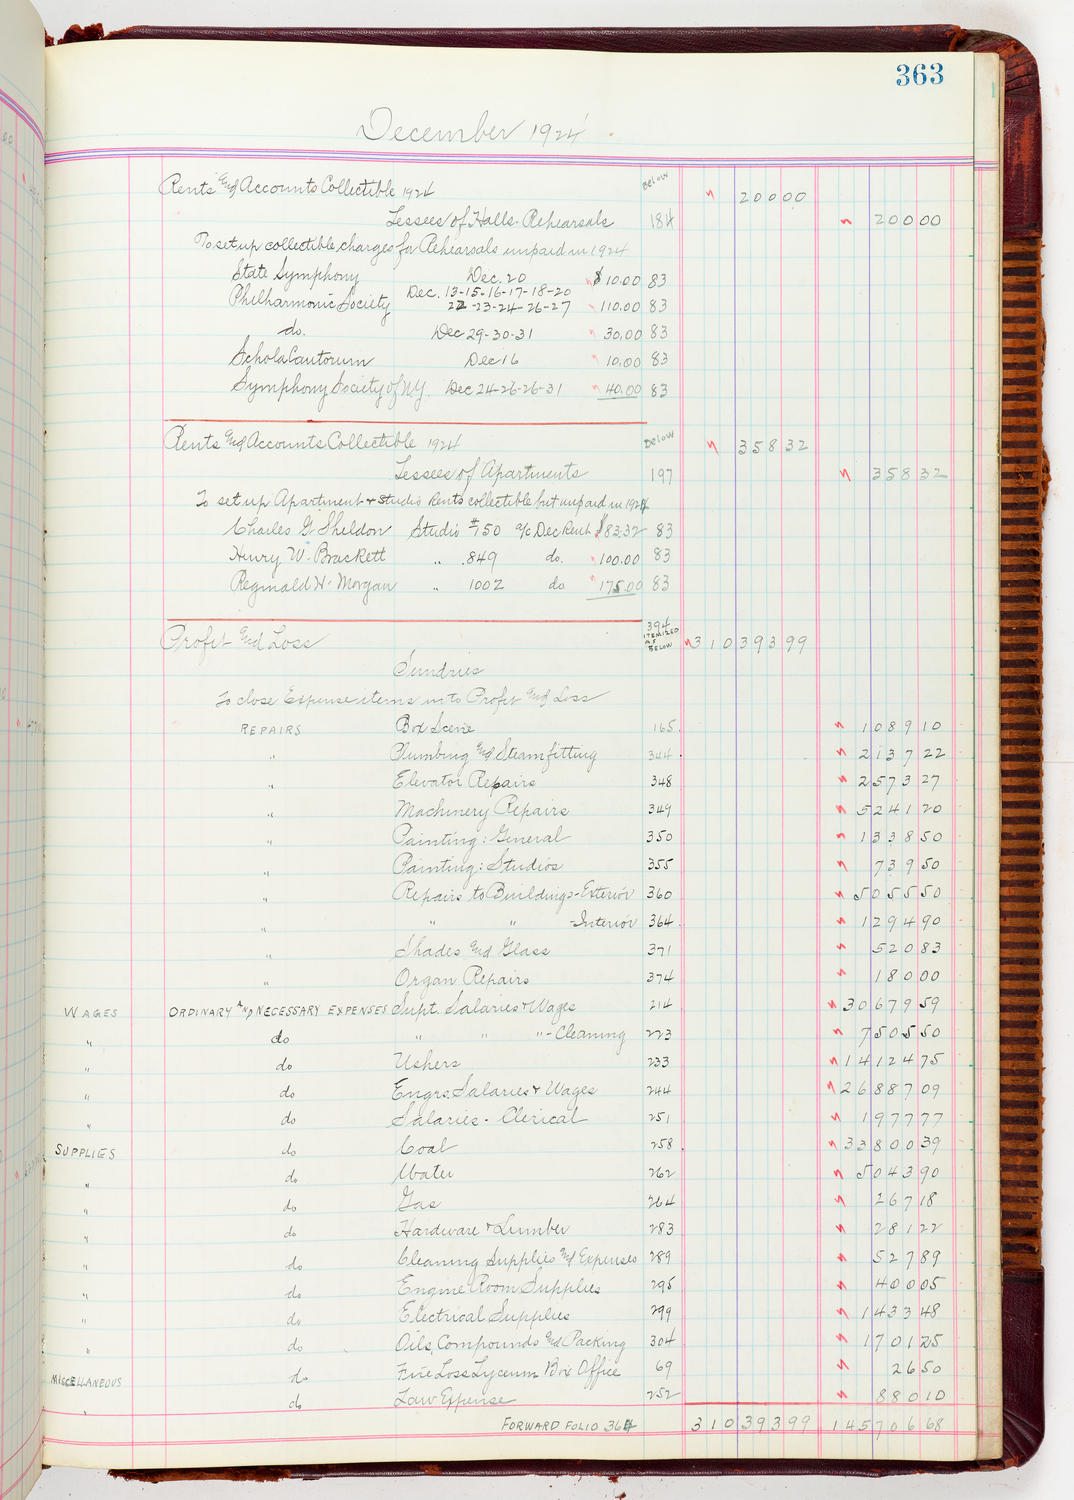 363
December 1924
Rents and Accounts Collectible 1924 Below 200 00
Lessees of Halls-Rehearsals 184 200 00
To set up collectible charges for Rehearsals unpaid in 1924
State Symphony Dec. 20 $10.00 83
Philharmonic Society Dec. 13-15-16-17-18-20
22-23-24-26-27 110.00 83
do. Dec 29-30-31 30.00 83
Schola Cantorum Dec 16 10.00 83
Symphony Society of N.Y. Dec 24-26-26-31 40.00 83
Rents and Accounts Collectible 1924 Below 358 32
Lessees of Apartments 197 358 32
To set up Apartment & Studio Rents collectible but unpaid in 1924
Charles G. Sheldon Studio #750 a/c Dec Rent $83.32 83
Henry W. Brackett " 849 do. 100.00 83
Reginald H. Morgan " 1002 do 175.00 83
Profit and Loss 394 ITEMIZED AS BELOW 310393 99
Sundries
To close Expense items into Profit and Loss
REPAIRS Box Scene 165 1089 10
" Plumbing and Steamfitting 344 2137 22
" Elevator Repairs 348 2573 27
" Machinery Repairs 349 5241 20
" Painting: General 350 1338 50
" Painting: Studios 355 739 50
" Repairs to Buildings-Exterior 360 5055 50
" " " -Interior 364 1294 90
" Shades and Glass 371 520 83
" Organ Repairs 374 180 00
WAGES ORDINARY AND NECESSARY EXPENSES Supt. Salaries & Wages 214 30679 59
" do " " "-Cleaning 223 7505 50
" do Ushers 233 14124 75
" do Engrs. Salaries & Wages 244 26887 09
" do Salaries - Clerical 251 1977 77
SUPPLIES do Coal 258 33800 39
" do Water 262 5043 90
" do Gas 264 267 18
" do Hardware & Lumber 283 281 22
" do Cleaning Supplies and Expenses 289 527 89
" do Engine Room Supplies 295 400 05
" do Electrical Supplies 299 1433 48
" do Oils, Compounds and Packing 304 1701 25
MISCELLANEOUS do Fire Loss Lyceum Box Office 69 26 50
" do Law Expense 252 880 10
FORWARD FOLIO 364 310393 99 145706 68